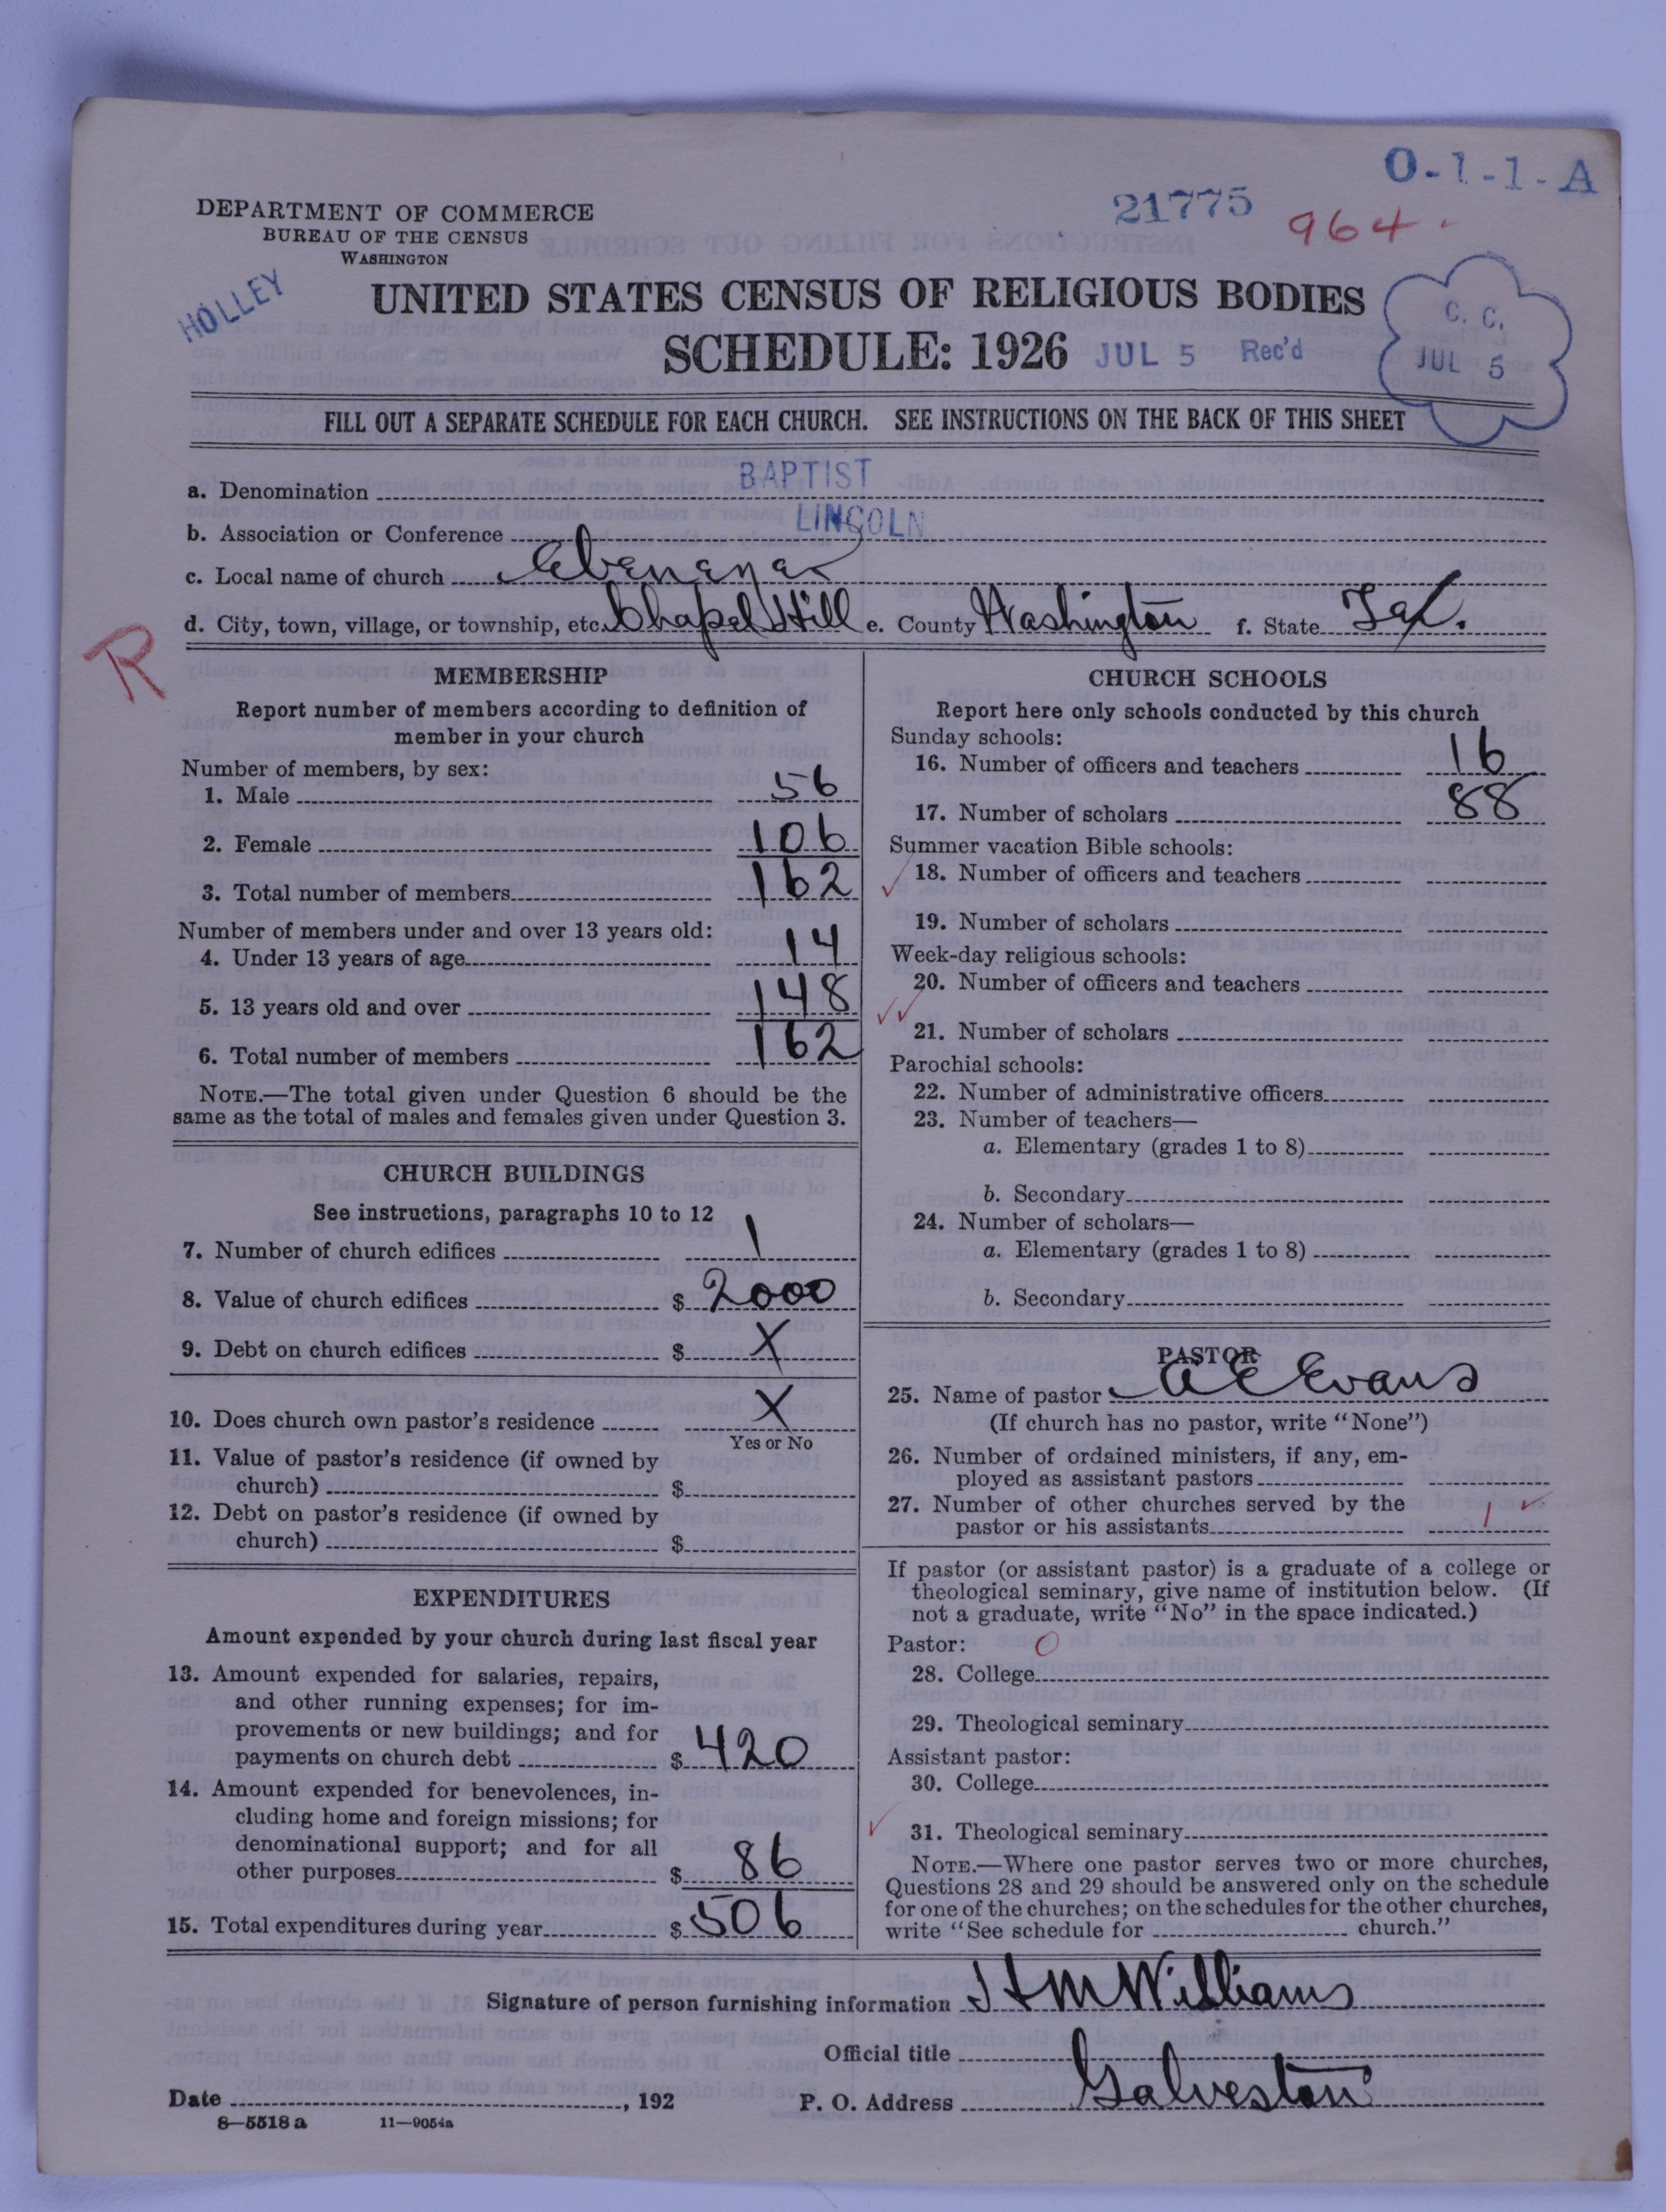 O-1-1-A
21775
964.
DEPARTMENT OF COMMERCE
BUREAU OF THE CENSUS
WASHINGTON
HOLLEY
UNITED STATES CENSUS OF RELIGIOUS BODIES
SCHEDULE: 1926
JUL 5 Rec'd
C. C.
JUL 5
FILL OUT A SEPARATE SCHEDULE FOR EACH CHURCH. SEE INSTRUCTIONS ON THE BACK OF THIS SHEET
a. Denomination BAPTIST
b. Association or Conference LINCOLN
c. Local name of church Ebenezer
d. City, town, village, or township, etc. Chapel Hill e. County Washington f. State Tex.
R
MEMBERSHIP
Report number of members according to definition of
member in your church
Number of members, by sex:
1. Male 56
2. Female 106
3. Total number of members 162
Number of members under and over 13 years old:
4. Under 13 years of age 14
5. 13 years old and over 148
6. Total number of members 162
NOTE.—The total given under Question 6 should be the
same as the total of males and females given under Question 3.
CHURCH BUILDINGS
See instructions, paragraphs 10 to 12
7. Number of church edifices 1
8. Value of church edifices $ 2000
9. Debt on church edifices $ X
10. Does church own pastor's residence X
Yes or No
11. Value of pastor's residence (if owned by
church) $
12. Debt on pastor's residence (if owned by
church) $
EXPENDITURES
Amount expended by your church during last fiscal year
13. Amount expended for salaries, repairs,
and other running expenses; for im-
provements or new buildings; and for
payments on church debt $ 420
14. Amount expended for benevolences, in-
cluding home and foreign missions; for
denominational support; and for all
other purposes $ 86
15. Total expenditures during year $ 506
CHURCH SCHOOLS
Report here only schools conducted by this church
Sunday schools:
16. Number of officers and teachers 16
17. Number of scholars 88
Summer vacation Bible schools:
18. Number of officers and teachers
19. Number of scholars
Week-day religious schools:
20. Number of officers and teachers
21. Number of scholars
Parochial schools:
22. Number of administrative officers
23. Number of teachers—
a. Elementary (grades 1 to 8)
b. Secondary
24. Number of scholars—
a. Elementary (grades 1 to 8)
b. Secondary
PASTOR
25. Name of pastor A E Evans
(If church has no pastor, write "None")
26. Number of ordained ministers, if any, em-
ployed as assistant pastors
27. Number of other churches served by the
pastor or his assistants 1
If pastor (or assistant pastor) is a graduate of a college or
theological seminary, give name of institution below. (If
not a graduate, write "No" in the space indicated.)
Pastor: 0
28. College
29. Theological seminary
Assistant pastor:
30. College
31. Theological seminary
NOTE.—Where one pastor serves two or more churches,
Questions 28 and 29 should be answered only on the schedule
for one of the churches; on the schedules for the other churches,
write "See schedule for church."
Signature of person furnishing information H M Williams
Official title
Date , 192 P. O. Address Galveston
8—5518 a 11—9054a